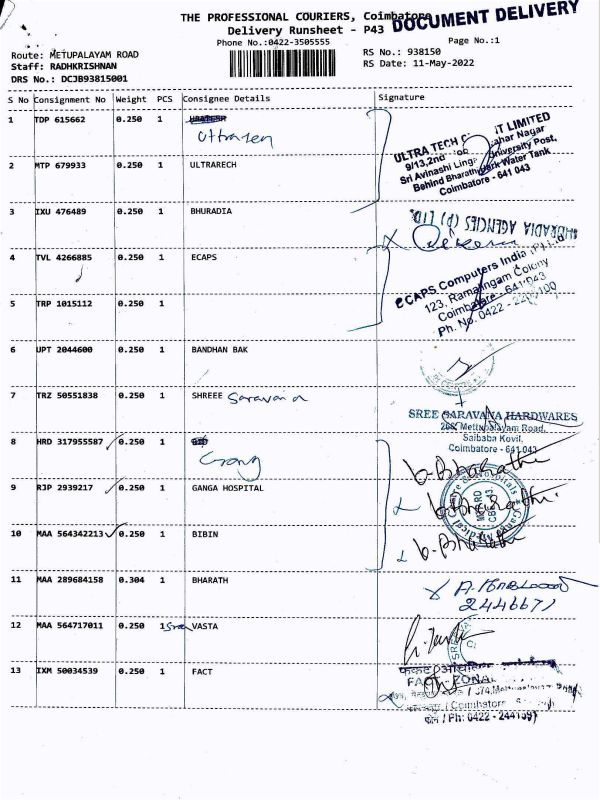 THE PROFESSIONAL COURIERS, Coimbatore
DOCUMENT DELIVERY
Delivery Runsheet - P43
Phone No.:0422-3505555
Page No.:1
Route: METUPALAYAM ROAD
RS No.: 938150
Staff: RADHKRISHNAN
RS Date: 11-May-2022
DRS No.: DCJB93815001
S No Consignment No Weight PCS Consignee Details Signature
1 TDP 615662 0.250 1
ULTRA TECH LIMITED
9/13,2nd
Sri Avinashi University Post,
Behind Bharathi Water Tank
Coimbatore - 641 043
2 MTP 679933 0.250 1 ULTRARECH
3 IXU 476489 0.250 1 BHURADIA
BHURADIA AGENCIES (P) LTD.
4 TVL 4266885 0.250 1 ECAPS
eCAPS Computers India (P) Ltd
123, Ramalingam Colony
Coimbatore - 641 043
Ph. No. 0422 -
5 TRP 1015112 0.250 1
6 UPT 2044600 0.250 1 BANDHAN BAK
7 TRZ 50551838 0.250 1 SHREEE Saravana
SREE SARAVANA HARDWARES
Mettupalayam Road,
Saibaba Kovil,
Coimbatore - 641 043
8 HRD 317955587 0.250 1
b-Bharathi
9 RJP 2939217 0.250 1 GANGA HOSPITAL
b-Bharathi.
10 MAA 564342213 0.250 1 BIBIN
b-Bharathi
11 MAA 289684158 0.304 1 BHARATH
2446671
12 MAA 564717011 0.250 1 Sree VASTA
13 IXM 50034539 0.250 1 FACT
Coimbatore
फोन / Ph: 0422 -